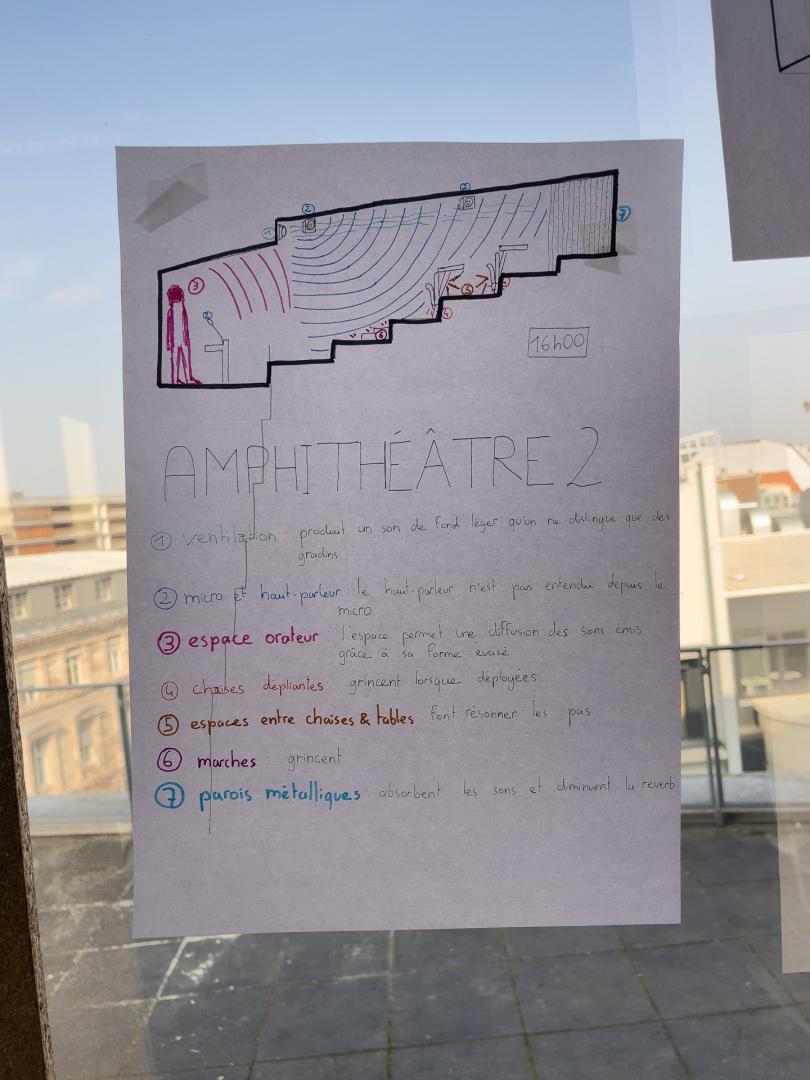 ② ② ① ⑦ ③ ② ⑤ ④ ⑥
16h00
AMPHITHÉÂTRE 2
① ventilation produit un son de fond léger qu'on ne distingue que des
gradins
② micro et haut-parleur le haut-parleur n'est pas entendu depuis le
micro
③ espace orateur l'espace permet une diffusion des sons émis
grâce à sa forme evasé
④ chaises dépliantes grincent lorsque déployées
⑤ espaces entre chaises & tables font résonner les pas
⑥ marches grincent
⑦ parois métalliques absorbent les sons et diminuent la reverb